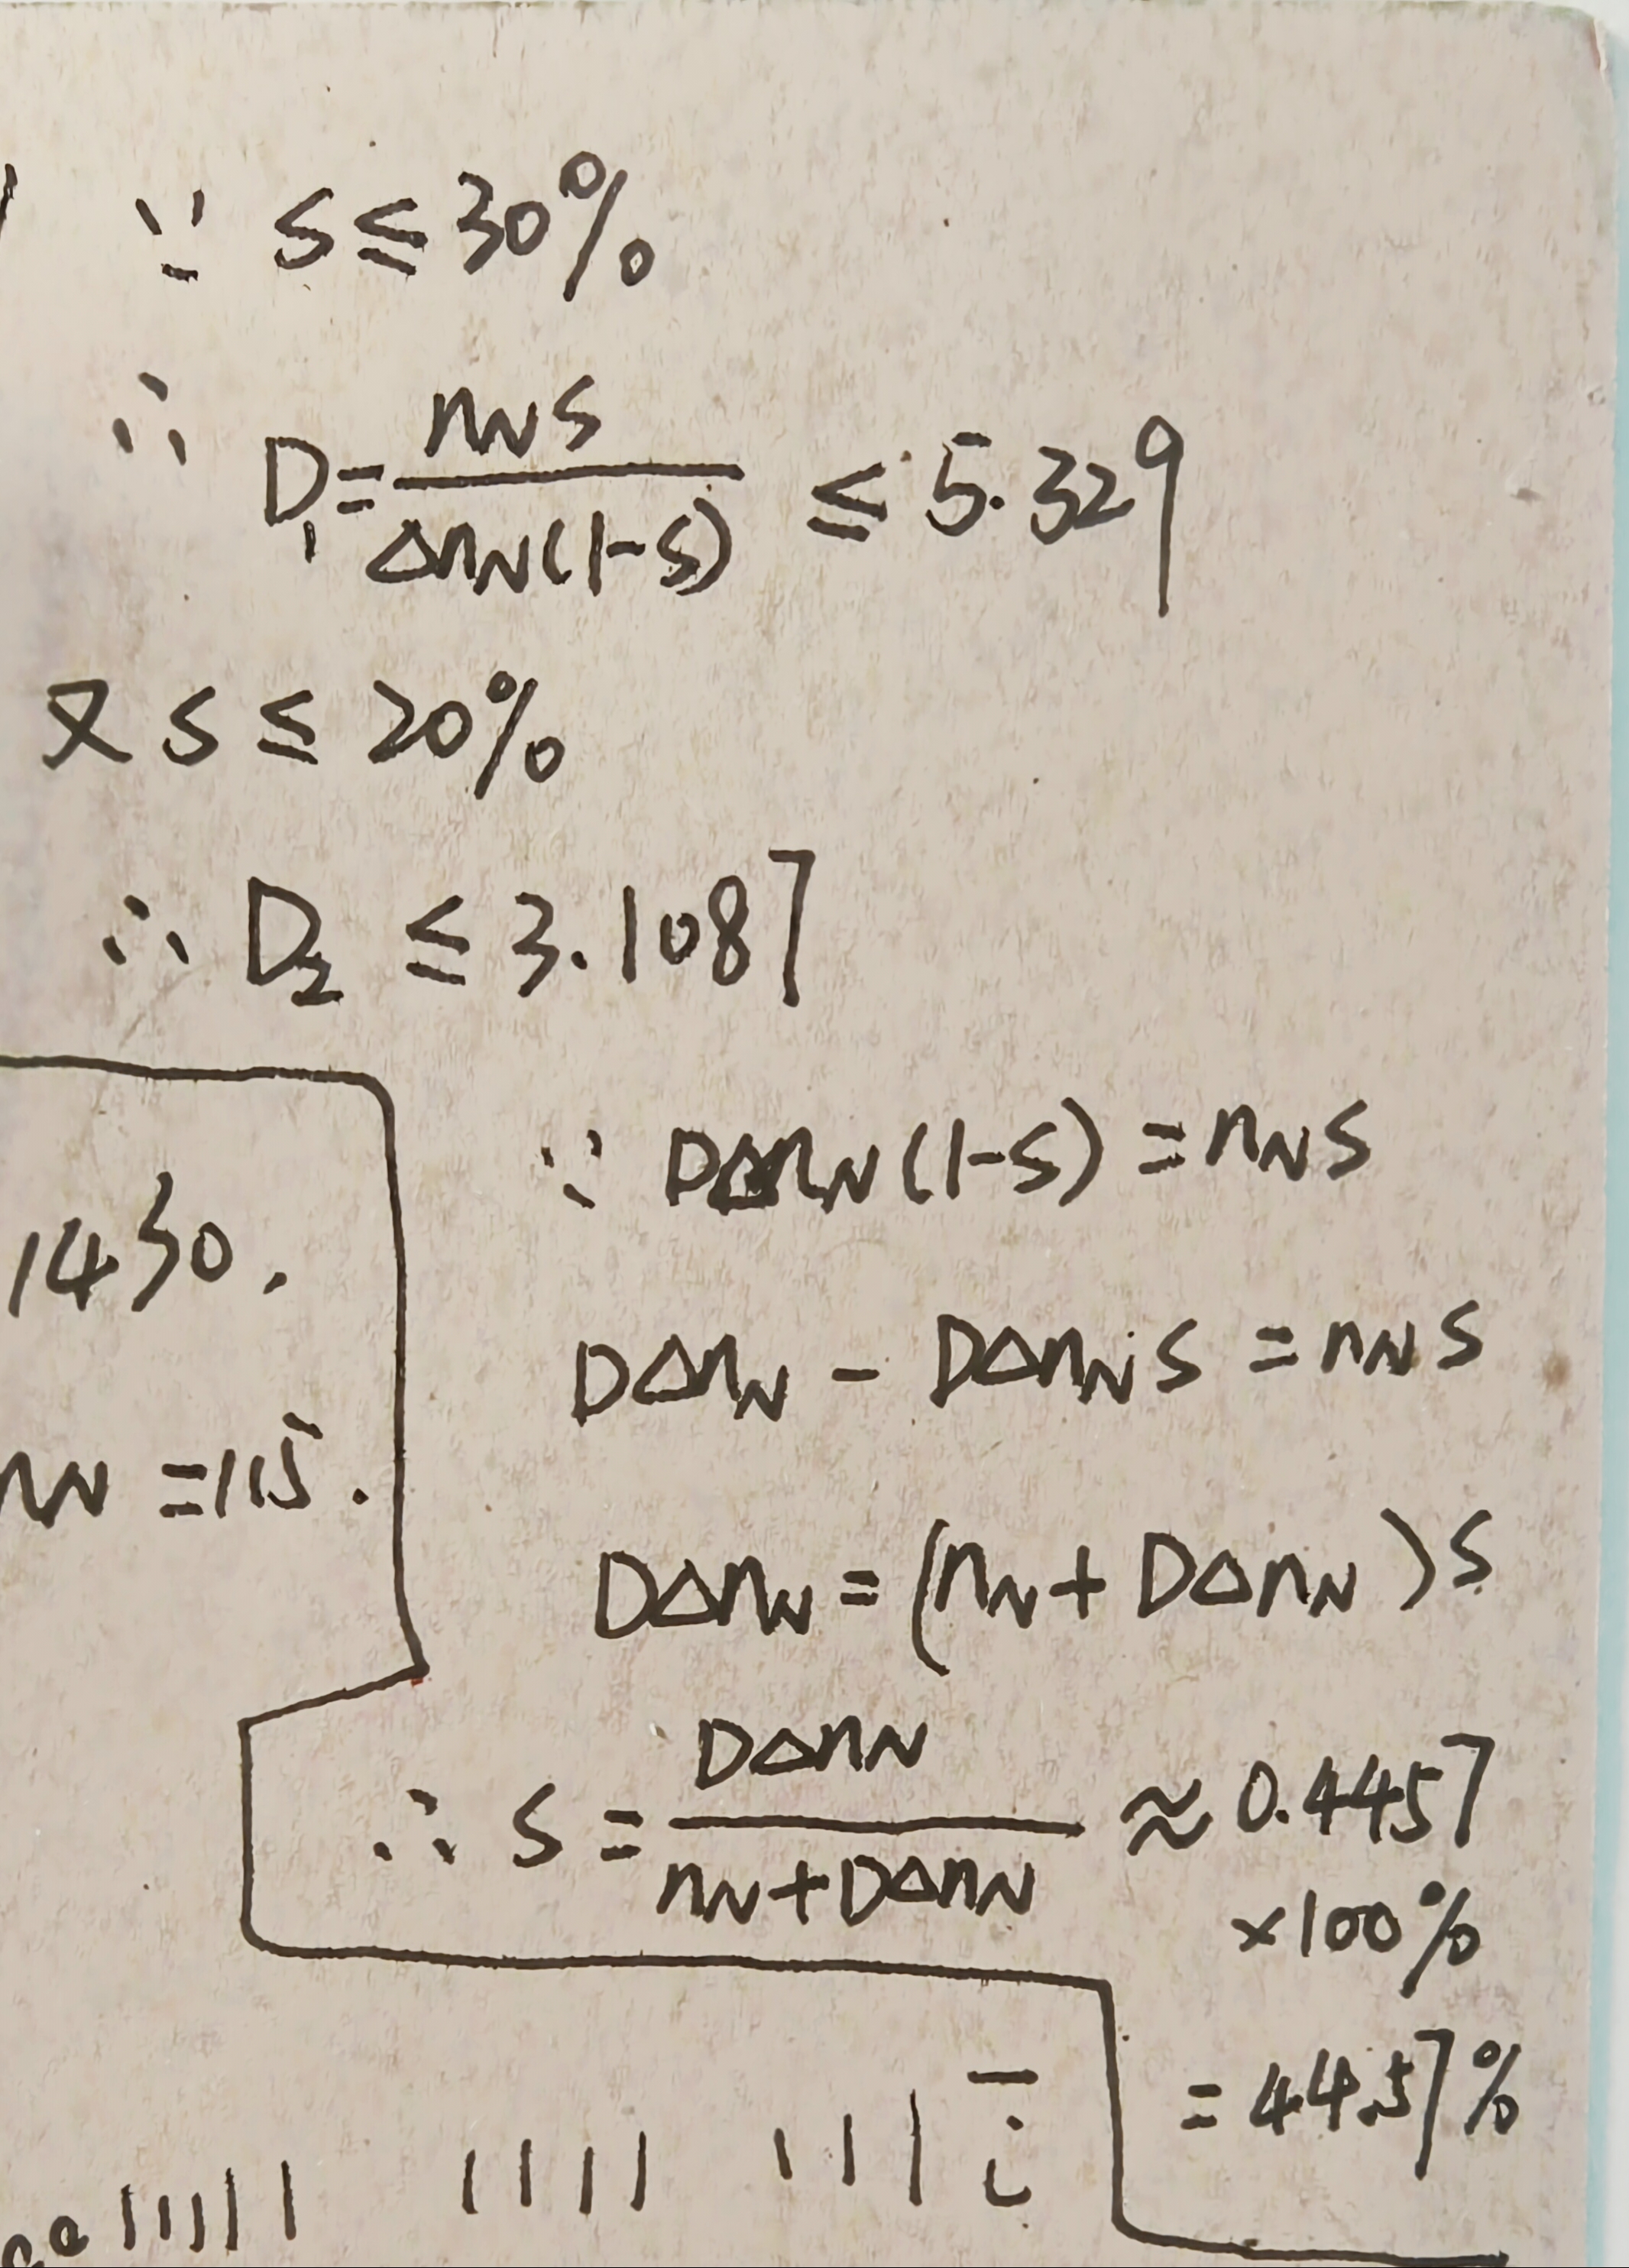 ∵ S ≤ 30%
∴ D₁ = n_N S / Δn_N(1-S) ≤ 5.329
又 S ≤ 20%
∴ D₂ ≤ 3.1087
∵ DΔn_N(1-S) = n_N S
1430.
DΔn_N - DΔn_N S = n_N S
n_N = 115.
DΔn_N = (n_N + DΔn_N) S
∴ S = DΔn_N / n_N + DΔn_N ≈ 0.4457
×100%
= 44.57%